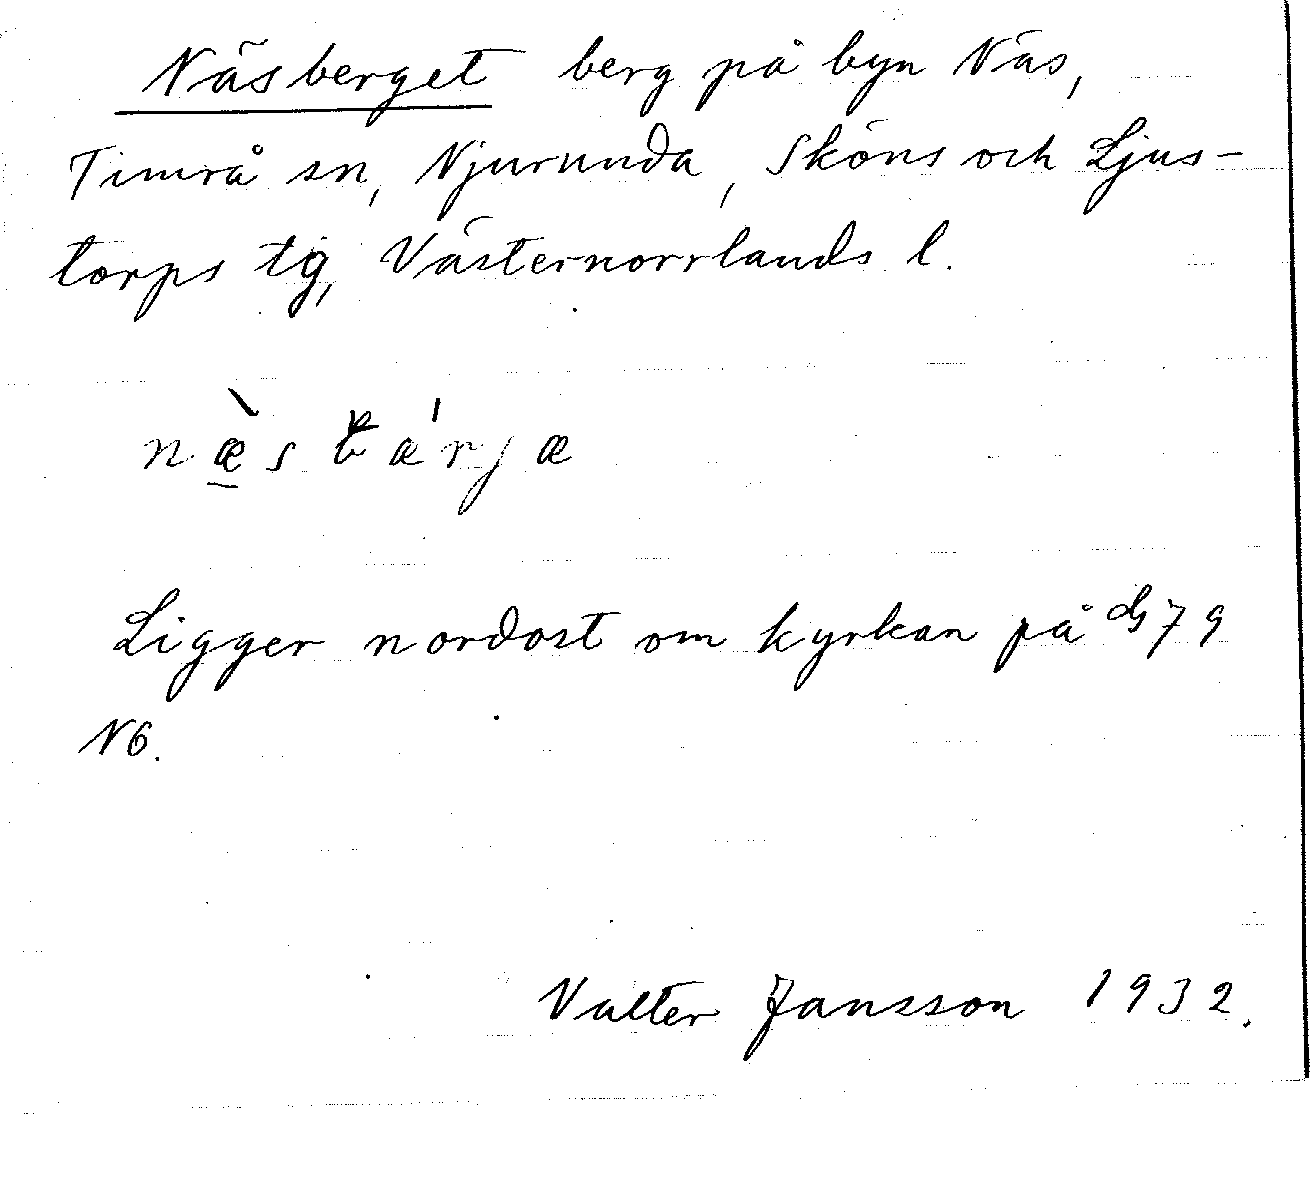 Näsberget berg på byn Näs,
Timrå sn, Njurunda, Sköns och Ljus-
torps tg, Västernorrlands l.
næ̀sbæ'rjæ
Ligger nordost om kyrkan på G79
N6.
Valter Jansson 1932.